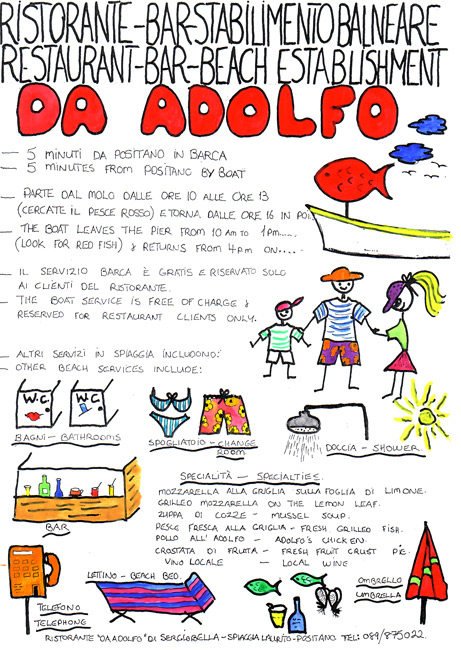 RISTORANTE-BAR-STABILIMENTO BALNEARE
RESTAURANT-BAR-BEACH ESTABLISHMENT
DA ADOLFO
— 5 MINUTI DA POSITANO IN BARCA
— 5 MINUTES FROM POSITANO BY BOAT
— PARTE DAL MOLO DALLE ORE 10 ALLE ORE 13
(CERCATE IL PESCE ROSSO) E TORNA DALLE ORE 16 IN POI.
— THE BOAT LEAVES THE PIER FROM 10 AM TO 1 PM.....
(LOOK FOR RED FISH) & RETURNS FROM 4 PM ON.....
— IL SERVIZIO BARCA È GRATIS E RISERVATO SOLO
AI CLIENTI DEL RISTORANTE.
— THE BOAT SERVICE IS FREE OF CHARGE &
RESERVED FOR RESTAURANT CLIENTS ONLY.
— ALTRI SERVIZI IN SPIAGGIA INCLUDONO:
— OTHER BEACH SERVICES INCLUDE:
W.C. W.C.
BAGNI - BATHROOMS
SPOGLIATOIO - CHANGE
ROOM
DOCCIA - SHOWER
BAR
SPECIALITÀ — SPECIALTIES.
MOZZARELLA ALLA GRIGLIA SULLA FOGLIA DI LIMONE.
GRILLED MOZZARELLA ON THE LEMON LEAF.
ZUPPA DI COZZE - MUSSEL SOUP.
PESCE FRESCA ALLA GRIGLIA - FRESH GRILLED FISH.
POLLO ALL' ADOLFO - ADOLFO'S CHICKEN.
CROSTATA DI FRUTA - FRESH FRUIT CRUST PIE.
VINO LOCALE — LOCAL WINE
TELEFONO
TELEPHONE
LETTINO - BEACH BED.
OMBRELLO
UMBRELLA
RISTORANTE "DA ADOLFO" DI SERGIO BELLA - SPIAGGIA LAURITO - POSITANO TEL: 089/875022.